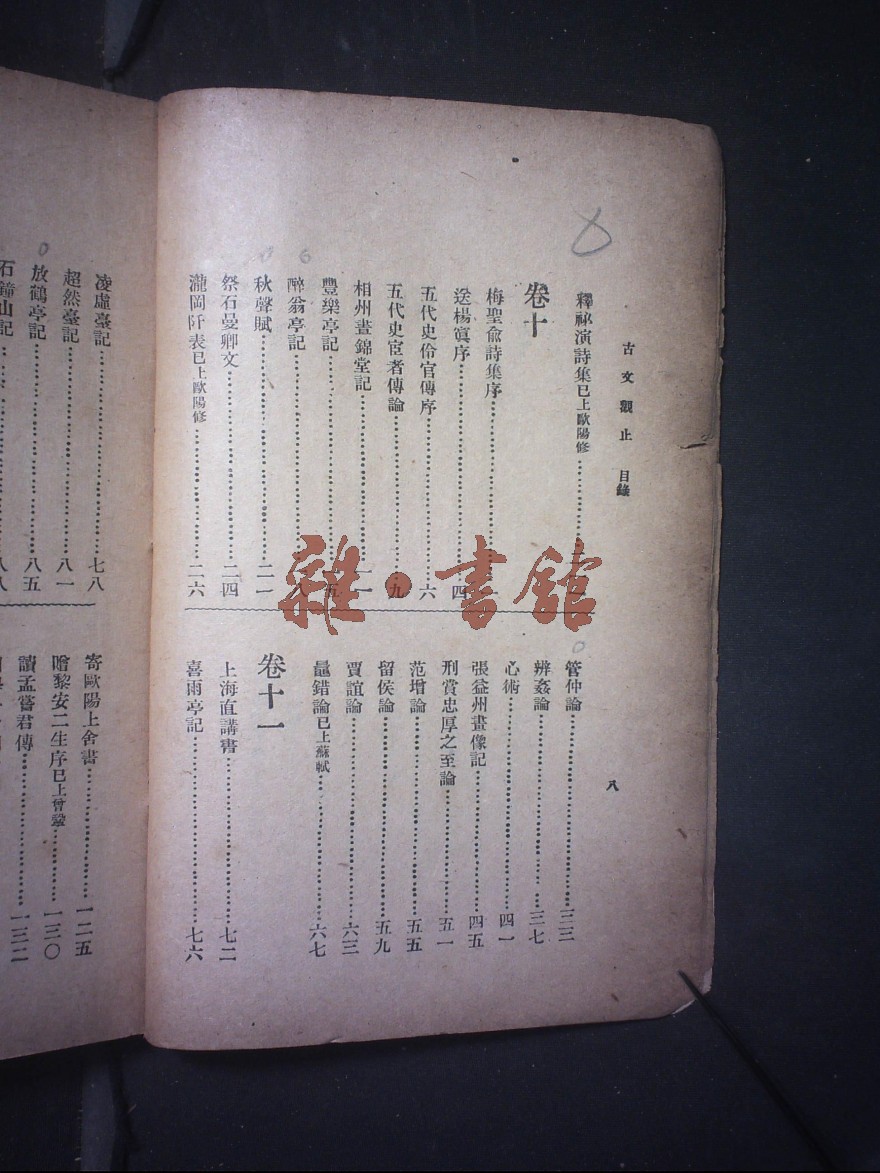 古文觀止 目錄
八
釋祕演詩集已上歐陽修
卷十
梅聖俞詩集序
送楊寘序 四
五代史伶官傳序 六
五代史宦者傳論 九
相州晝錦堂記 一一
豐樂亭記 一五
醉翁亭記 一八
秋聲賦 二一
祭石曼卿文 二四
瀧岡阡表已上歐陽修 二六
管仲論 三三
辨姦論 三七
心術 四一
張益州畫像記 四五
刑賞忠厚之至論 五一
范增論 五五
留侯論 五九
賈誼論 六三
鼂錯論已上蘇軾 六七
卷十一
上海直講書 七二
喜雨亭記 七六
凌虛臺記 七八
超然臺記 八一
放鶴亭記 八五
石鐘山記 八八
寄歐陽上舍書 一二五
贈黎安二生序已上曾鞏 一三〇
讀孟嘗君傳 一三二
雜·書館